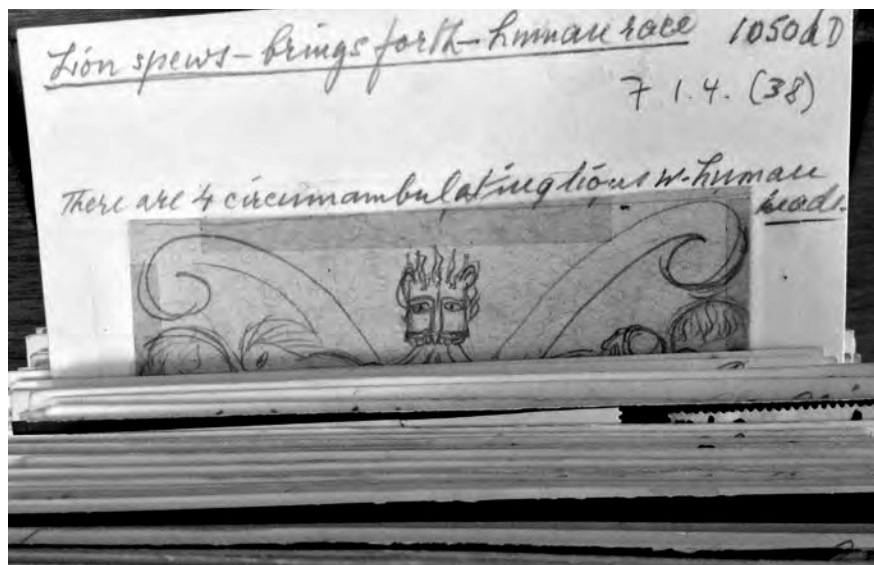 Lion spews - brings forth - human race 1050 AD
7 1.4. (38)
There are 4 circumambulating lions w. human
heads.